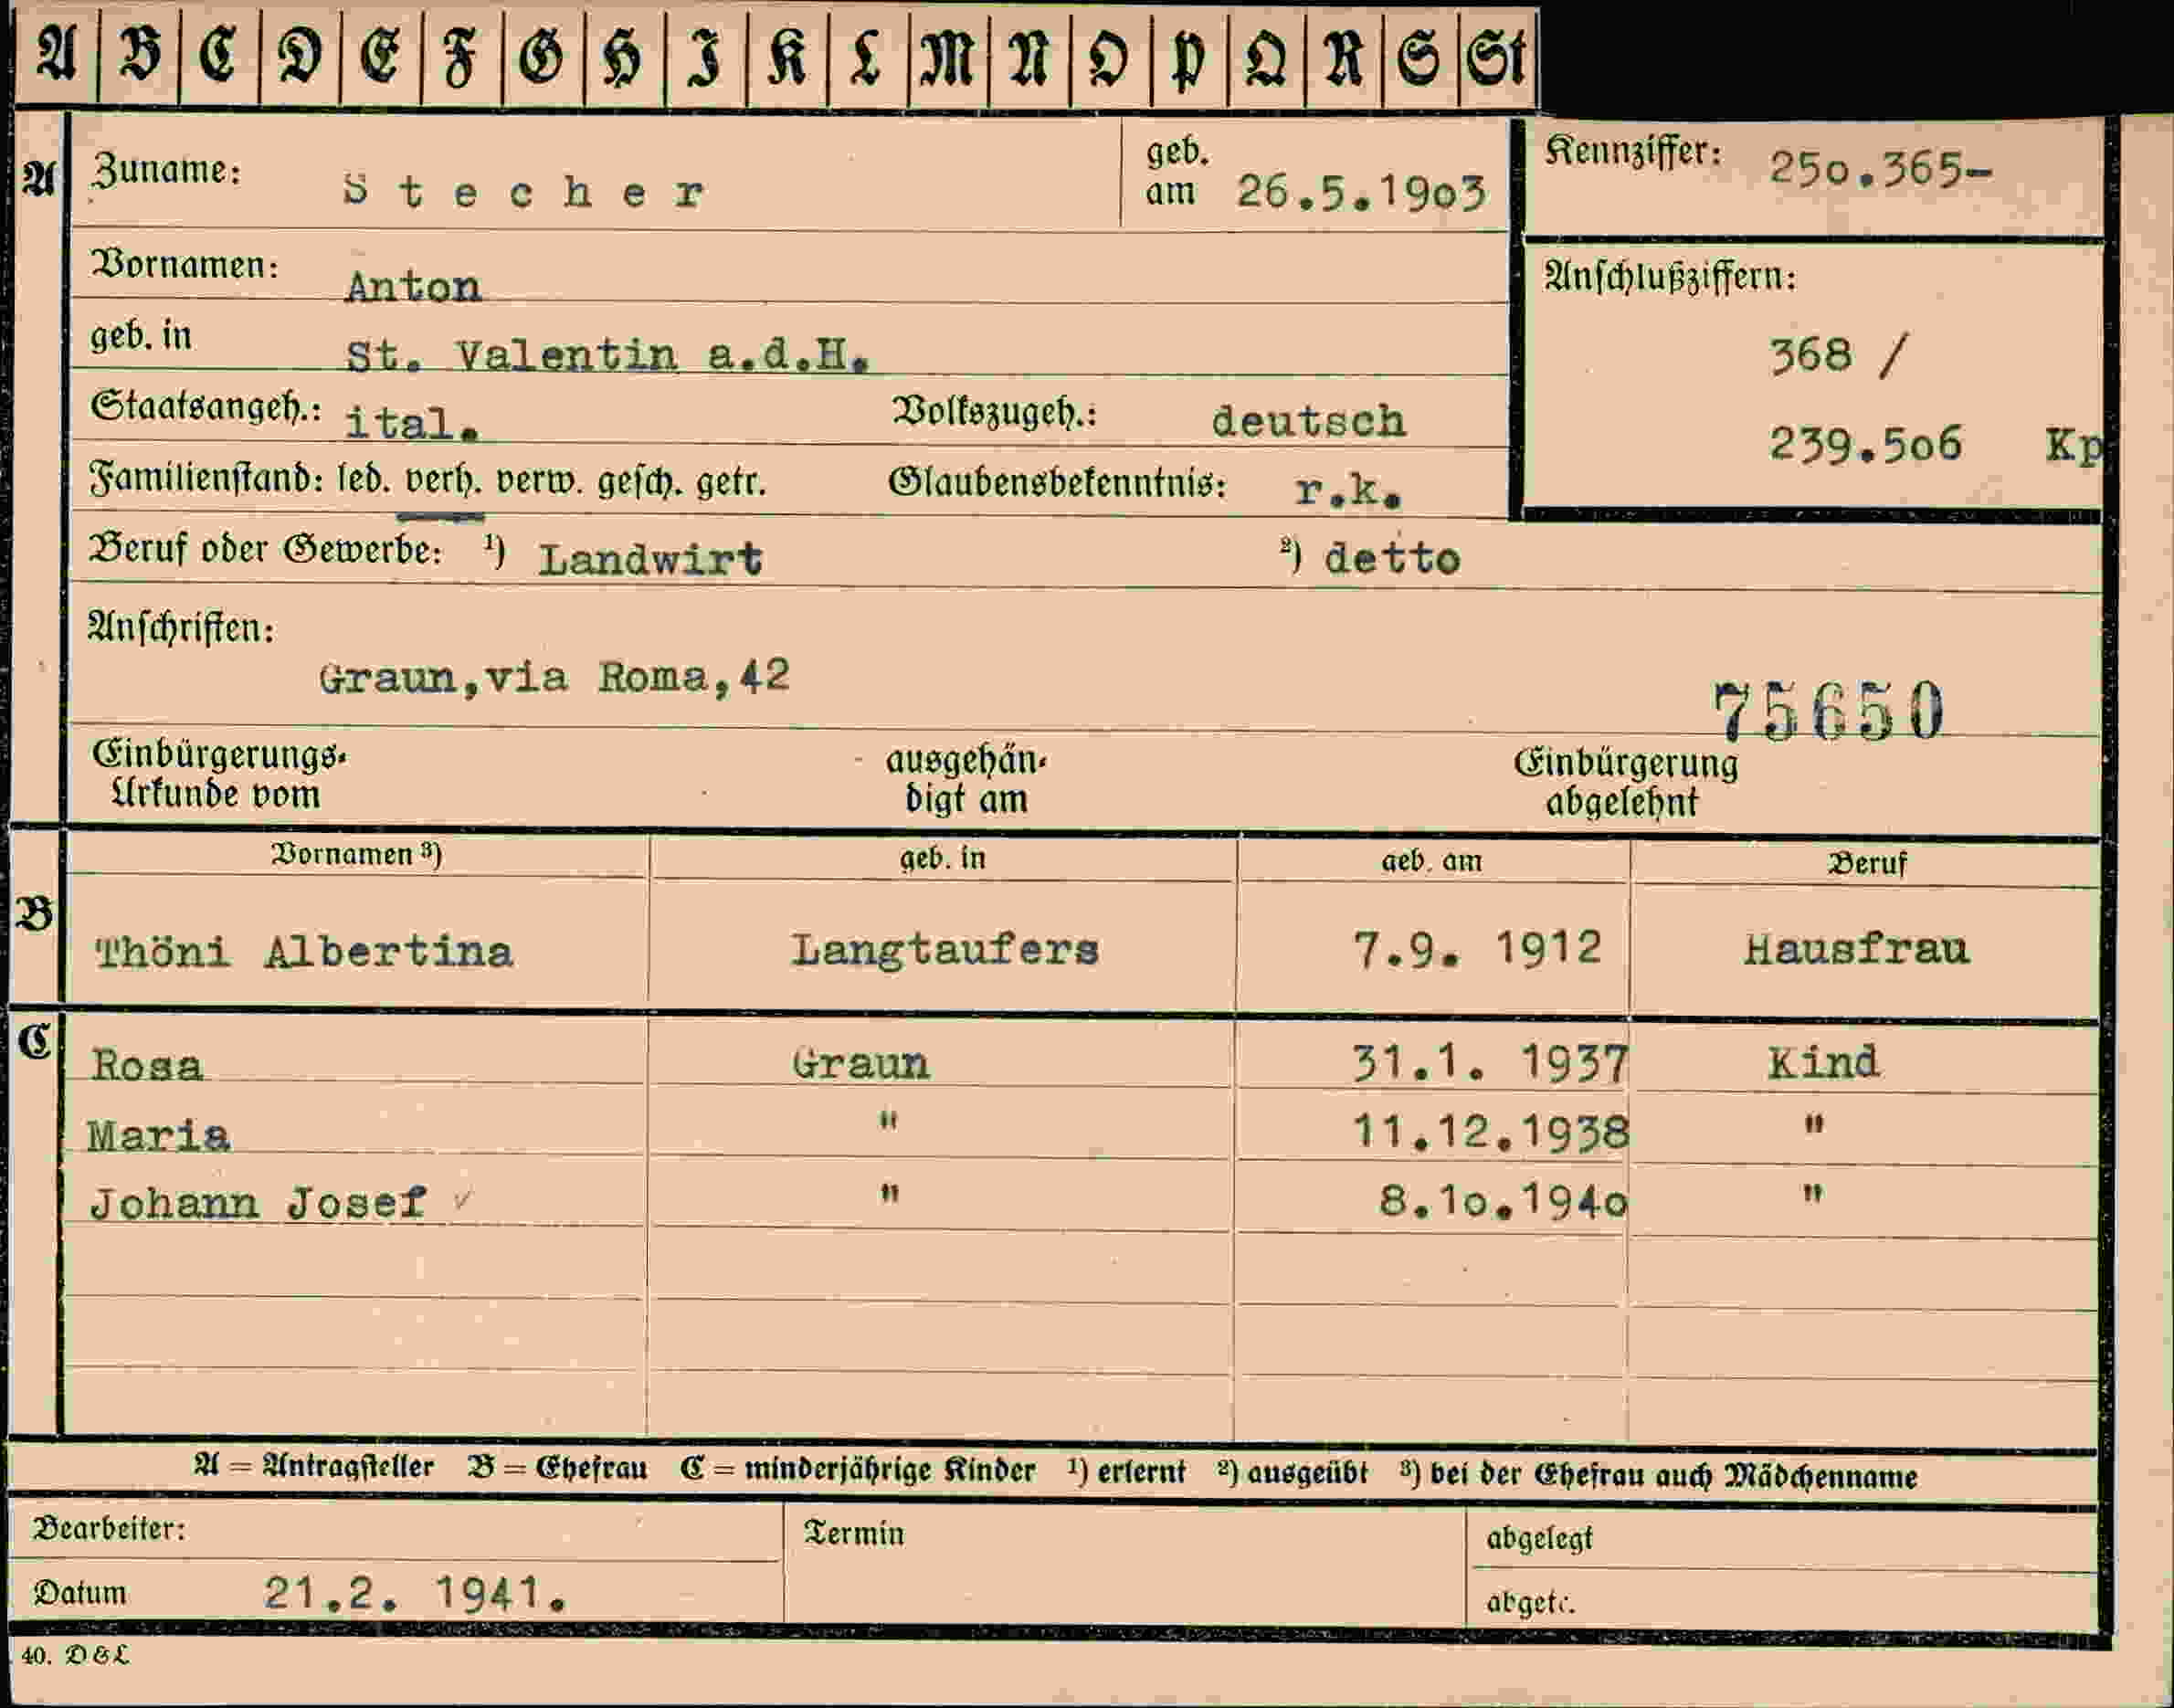 A B C D E F G H I K L M N O P Q R S St
A Zuname: Stecher geb. am 26.5.1903 Kennziffer: 250.365-
Vornamen: Anton
Anschlußziffern:
geb. in St. Valentin a.d.H.
368 /
Staatsangeh.: ital. Volkszugeh.: deutsch
239.506 Kp
Familienstand: led. verh. verw. gesch. getr. Glaubensbekenntnis: r.k.
Beruf oder Gewerbe: ¹) Landwirt ²) detto
Anschriften:
Graun,via Roma,42
75650
Einbürgerungs-
Urkunde vom
ausgehän-
digt am
Einbürgerung
abgelehnt
Vornamen ³) geb. in geb. am Beruf
B Thöni Albertina Langtaufers 7.9. 1912 Hausfrau
C Rosa Graun 31.1. 1937 Kind
Maria " 11.12.1938 "
Johann Josef ✓ " 8.10.1940 "
A = Antragsteller B = Ehefrau C = minderjährige Kinder ¹) erlernt ²) ausgeübt ³) bei der Ehefrau auch Mädchenname
Bearbeiter: Termin abgelegt
Datum 21.2. 1941.
40. D & L